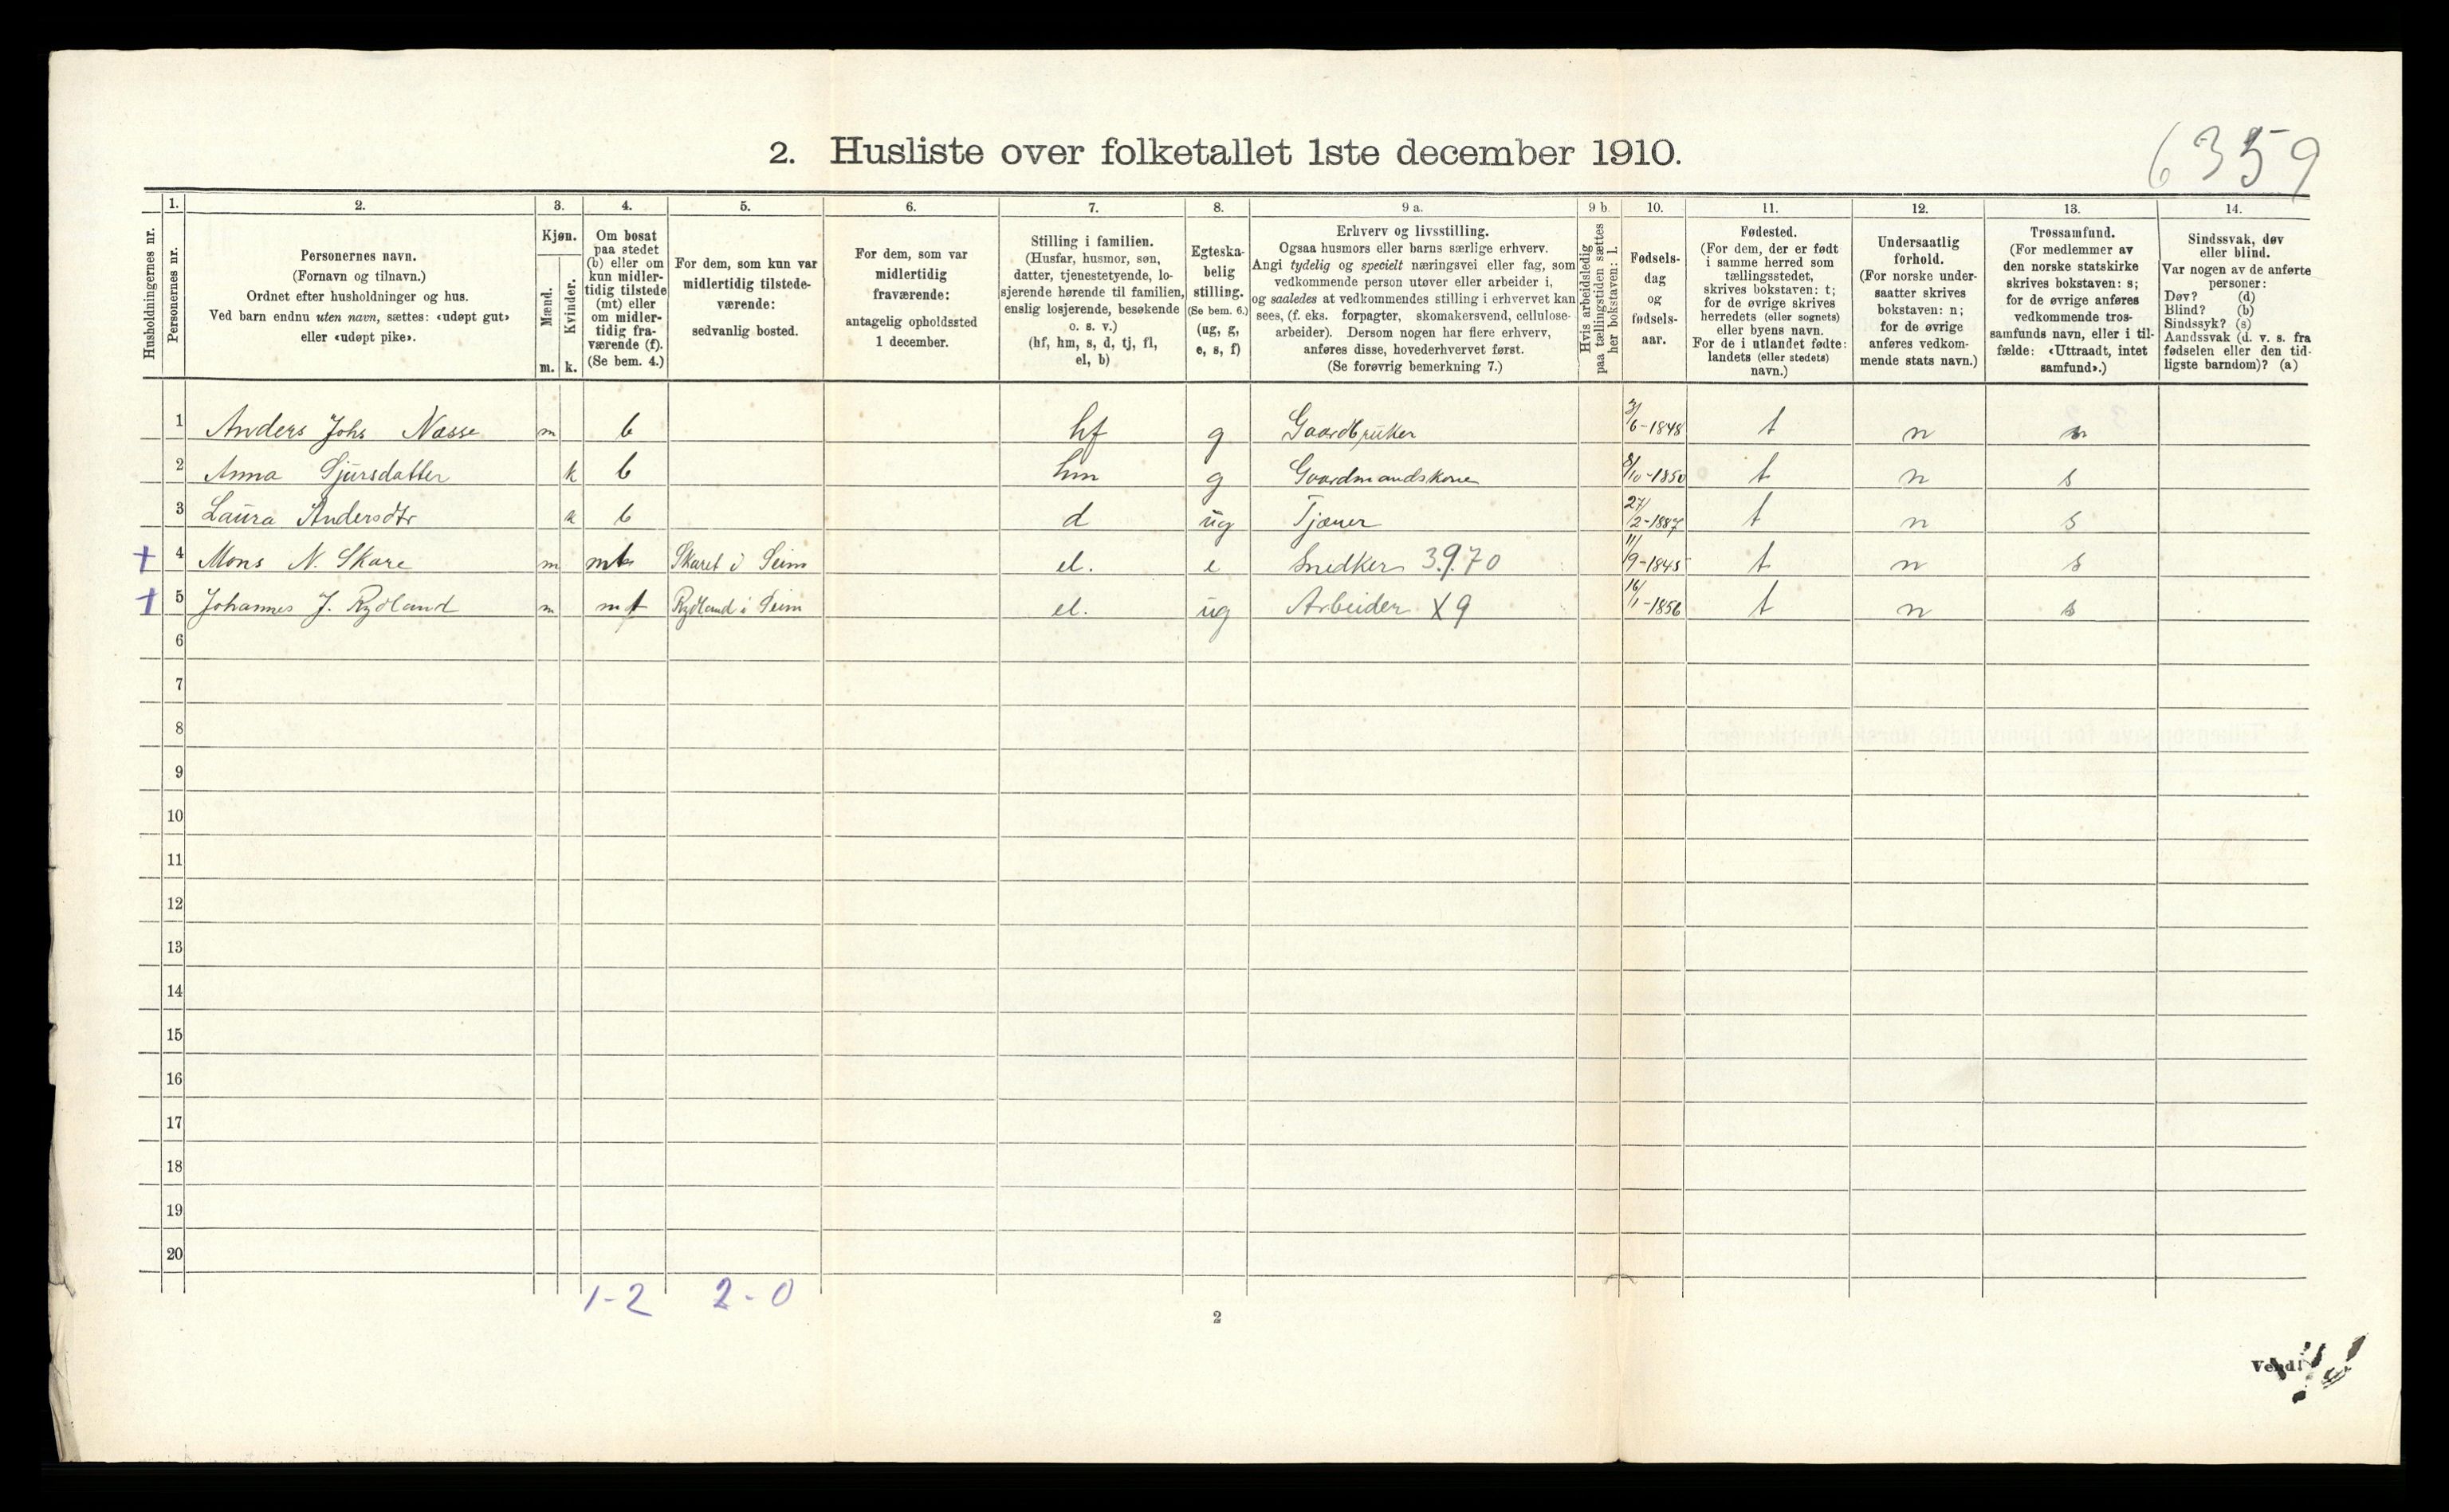 6359
2. Husliste over folketallet 1ste december 1910.
Husholdningernes nr.
1. Personernes nr.
2.
Personernes navn.
(Fornavn og tilnavn.)
Ordnet efter husholdninger og hus.
Ved barn endnu uten navn, sættes: «udøpt gut»
eller «udøpt pike».
3.
Kjøn.
Mænd.
Kvinder.
m. k.
4.
Om bosat
paa stedet
(b) eller om
kun midler-
tidig tilstede
(mt) eller
om midler-
tidig fra-
værende (f).
(Se bem. 4.)
5.
For dem, som kun var
midlertidig tilstede-
værende:
sedvanlig bosted.
6.
For dem, som var
midlertidig
fraværende:
antagelig opholdssted
1 december.
7.
Stilling i familien.
(Husfar, husmor, søn,
datter, tjenestetyende, lo-
sjerende hørende til familien,
enslig losjerende, besøkende
o. s. v.)
(hf, hm, s, d, tj, fl,
el, b)
8.
Egteska-
belig
stilling.
(Se bem. 6.)
(ug, g,
e, s, f)
9 a.
Erhverv og livsstilling.
Ogsaa husmors eller barns særlige erhverv.
Angi tydelig og specielt næringsvei eller fag, som
vedkommende person utøver eller arbeider i,
og saaledes at vedkommendes stilling i erhvervet kan
sees, (f. eks. forpagter, skomakersvend, cellulose-
arbeider). Dersom nogen har flere erhverv,
anføres disse, hovederhvervet først.
(Se forøvrig bemerkning 7.)
9 b.
Hvis arbeidsledig
paa tællingstiden sættes
her bokstaven: l.
10.
Fødsels-
dag
og
fødsels-
aar.
11.
Fødested.
(For dem, der er født
i samme herred som
tællingsstedet,
skrives bokstaven: t;
for de øvrige skrives
herredets (eller sognets)
eller byens navn.
For de i utlandet fødte:
landets (eller stedets)
navn.)
12.
Undersaatlig
forhold.
(For norske under-
saatter skrives
bokstaven: n;
for de øvrige
anføres vedkom-
mende stats navn.)
13.
Trossamfund.
(For medlemmer av
den norske statskirke
skrives bokstaven: s;
for de øvrige anføres
vedkommende tros-
samfunds navn, eller i til-
fælde: «Uttraadt, intet
samfund».)
14.
Sindssvak, døv
eller blind.
Var nogen av de anførte
personer:
Døv? (d)
Blind? (b)
Sindssyk? (s)
Aandssvak (d. v. s. fra
fødselen eller den tid-
ligste barndom)? (a)
1 Anders Johs Næsse m b hf g Gaardbruker 3/6-1848 t n
2 Anna Sjursdatter k b hm g Gaardmandskone 8/10-1850 t n s
3 Laura Andersdtr k b d ug Tjener 27/2-1887 t n s
+ 4 Mons N. Skare m mt Skaret i Seim el. e Snedker 3.9.70 11/9-1845 t n s
+ 5 Johannes J. Rydland m mt Rydland i Seim el. ug Arbeider X9 16/1-1856 t n s
6
7
8
9
10
11
12
13
14
15
16
17
18
19
20
1-2 2-0
2
Vend!